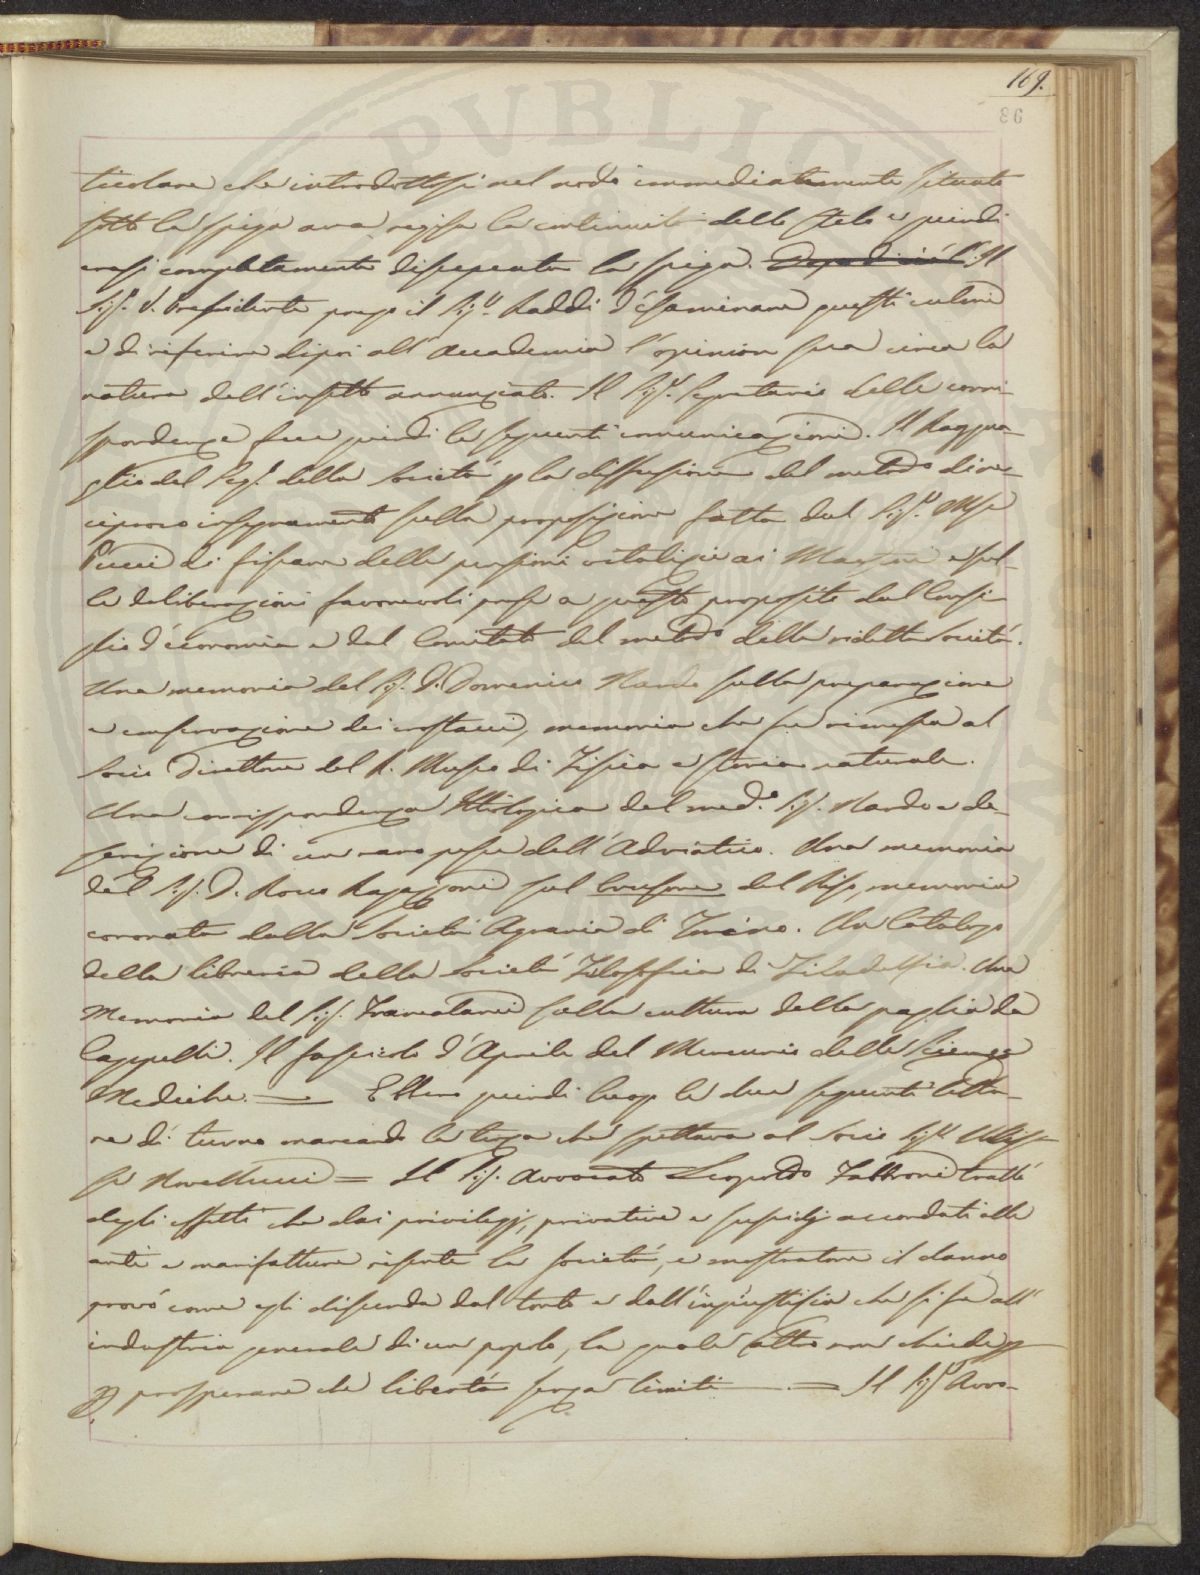 169.
86
ticolare che introdottosi nel nodo immediatamente situato
sotto la spiga avea rosa la continuità dello stelo e quindi
erasi completamente disseccata la spiga. Il
Sig.r V. Presidente pregò il Sig.r Raddi d'esaminare questi culmi
e di riferire dipoi all'Accademia l'opinion sua circa la
natura dell'insetto annunziato. Il Sig.r Segretario delle corri
spondenze fece quindi le seguenti comunicazioni. Il Raggua-
glio del Seg.o della Società p la diffusione del metodo di re-
ciproco insegnamento sulla proposizione fatta dal Sig.r Mse
Pucci di fissare delle pensioni vitalizie ai Maestri e sul-
le deliberazioni favorevoli prese a questo proposito dal Consi-
glio d'economia e dal Comitato del metodo della sudetta Società.
Una memoria del Sig. D. Domenico Nardo sulla preparazione
e conservazione dei crostacei, memoria che fu rimessa al
Socio Direttore del R. Museo di Fisica e Storia naturale.
Una corrispondenza Ittiologica del med.o Sig. Nardo e de-
scrizione di un raro pesce dell'Adriatico. Una memoria
del Sig. D. Rocco Ragazzoni sul brusone del Riso, memoria
coronata dalla Società Agraria di Torino. Un Catalogo
della libreria della Società Filosofica di Filadelfia. Una
Memoria del Sig. sulla cultura della paglia da
Cappelli. Il fascicolo d'Aprile del Mercurio delle Scienze
Mediche. = Ebbero quindi luogo le due seguenti lettu-
re di turno mancando la terza che spettava al Socio Sig.r Ulis-
se Novellucci = Il Sig. Avvocato Leopoldo Fabbroni trattò
degli effetti che dai privilegj, privative e sussidj accordati alle
arti e manifatture risente la società, e mostratone il danno
provò come egli discenda dal torto e dall'ingiustizia che si fa all'
industria generale di un popolo, la quale altro non chiede
p prosperare che libertà senza limiti = Il Sig.r Avvo-